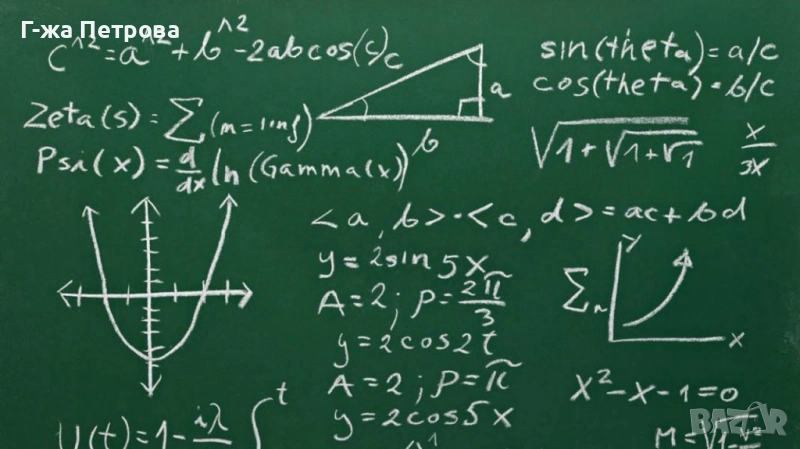 Г-жа Петрова
c^2=a^2+b^2-2abcos(c)
c
a
b
sin(theta)=a/c
cos(theta)=b/c
Zeta(s)=∑(m=1 inf)
Psi(x)=d/dx ln(Gamma(x))
√1+√1+√1
x/3x
<a,b>·<c,d>=ac+bd
y=2sin5x
A=2;P=2π/3
y=2cos2t
A=2;P=π
y=2cos5x
∑n
y
x
x²-x-1=0
U(t)=1-iλ
∫t
BAZAR